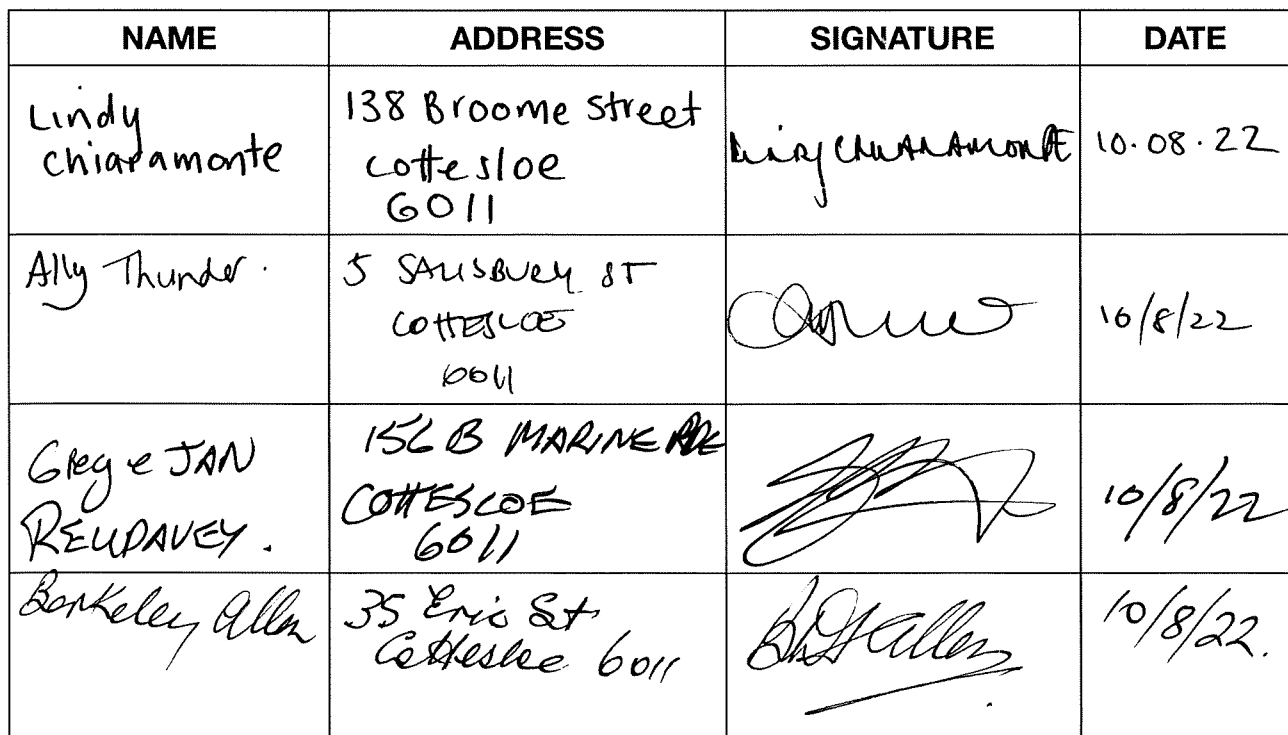 NAME ADDRESS SIGNATURE DATE
Lindy
Chiaramonte
138 Broome Street
Cottesloe
6011
10.08.22
Ally Thunder.
5 SALISBURY ST
COTTESLOE
6011
10/8/22
Greg e JAN
156 B MARINE PDE
COTTESLOE
6011
10/8/22
Berkeley Allen
35 Eric St
Cottesloe 6011
10/8/22.